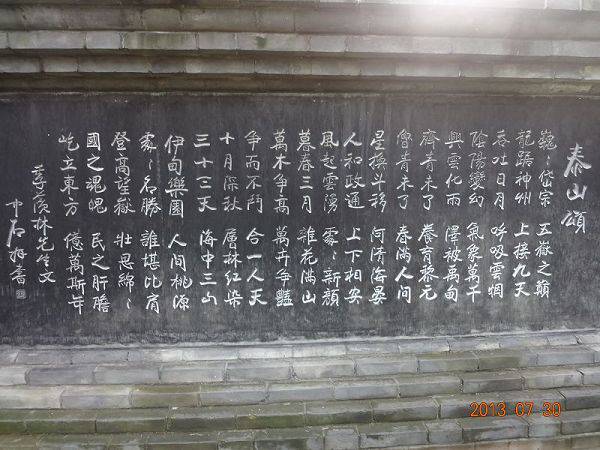 泰山頌
巍々岱宗 五嶽之巔
龍踞神州 上接九天
吞吐日月 呼吸雲烟
陰陽變幻 氣象萬千
興雲化雨 澤被萬甸
齊青未了 養育黎元
魯青未了 春滿人間
星換斗移 河清海晏
人和政通 上下相安
風起雲湧 處々新顔
暮春三月 雜花滿山
萬木爭高 萬卉爭豔
爭而不鬥 合一人天
十月深秋 層林紅染
三十三天 海中三山
伊甸樂園 人間桃源
處々名勝 誰堪比肩
登高望嶽 壯思綿々
國之魂魄 民之肝膽
屹立東方 億萬斯年
季羨林先生文
中石拜書
2013 07 30